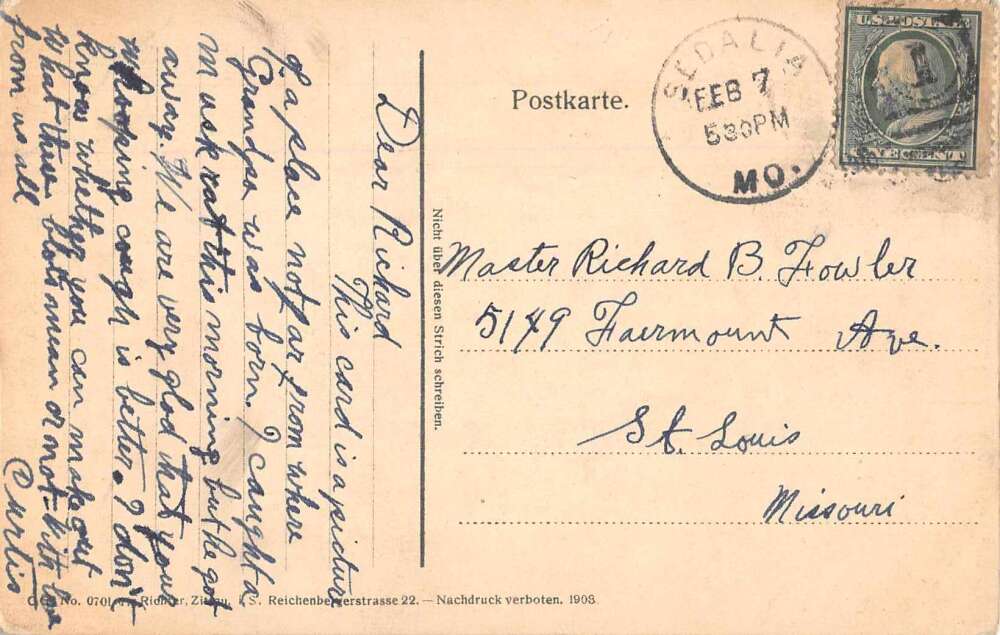 Postkarte.
SEDALIA
FEB 7
530PM
MO.
U.S. POSTAGE
ONE CENT
Master Richard B. Fowler
5149 Fairmount Ave.
St. Louis
Missouri
Nicht über diesen Strich schreiben.
Dear Richard
This card is a picture
of a place not far from where
Grandpa was born. I caught a
Muskrat this morning but he got
away. We are very glad that your
whooping cough is better. I don't
know whether you can make out
what these blots mean or not = With love
from us all
Curtis
No. 0701 Richter, Zittau i. S. Reichenbergerstrasse 22. — Nachdruck verboten. 1908